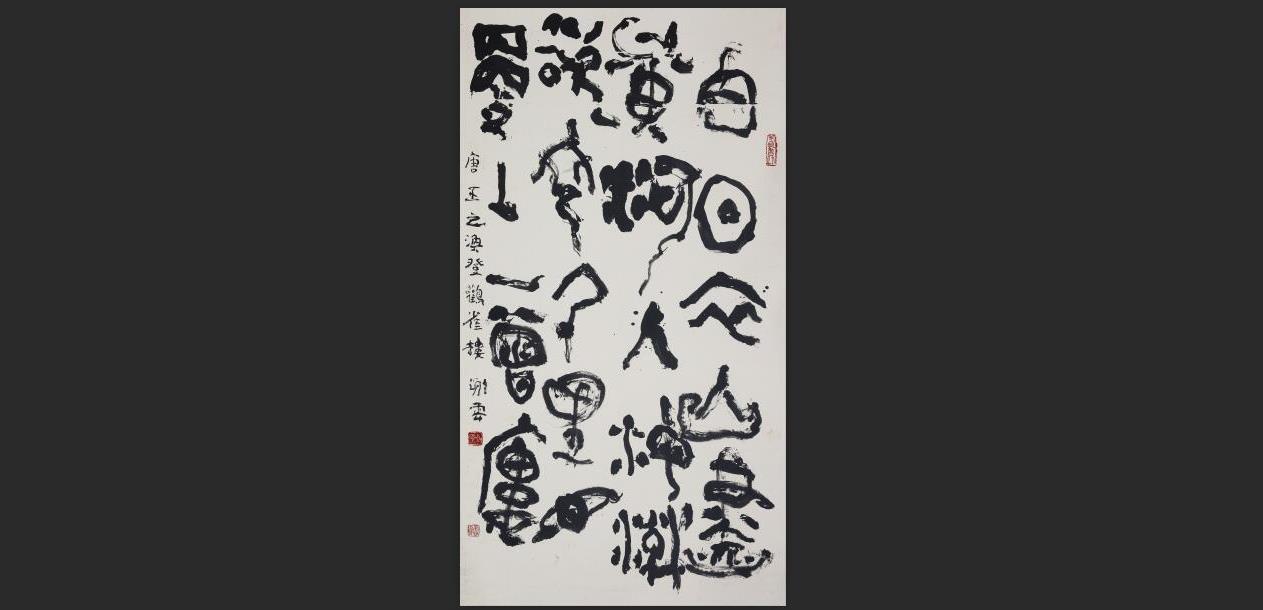 白日依山盡
黃河入海流
欲窮千里目
更上一層樓
唐王之渙登鸛雀樓 謝雲